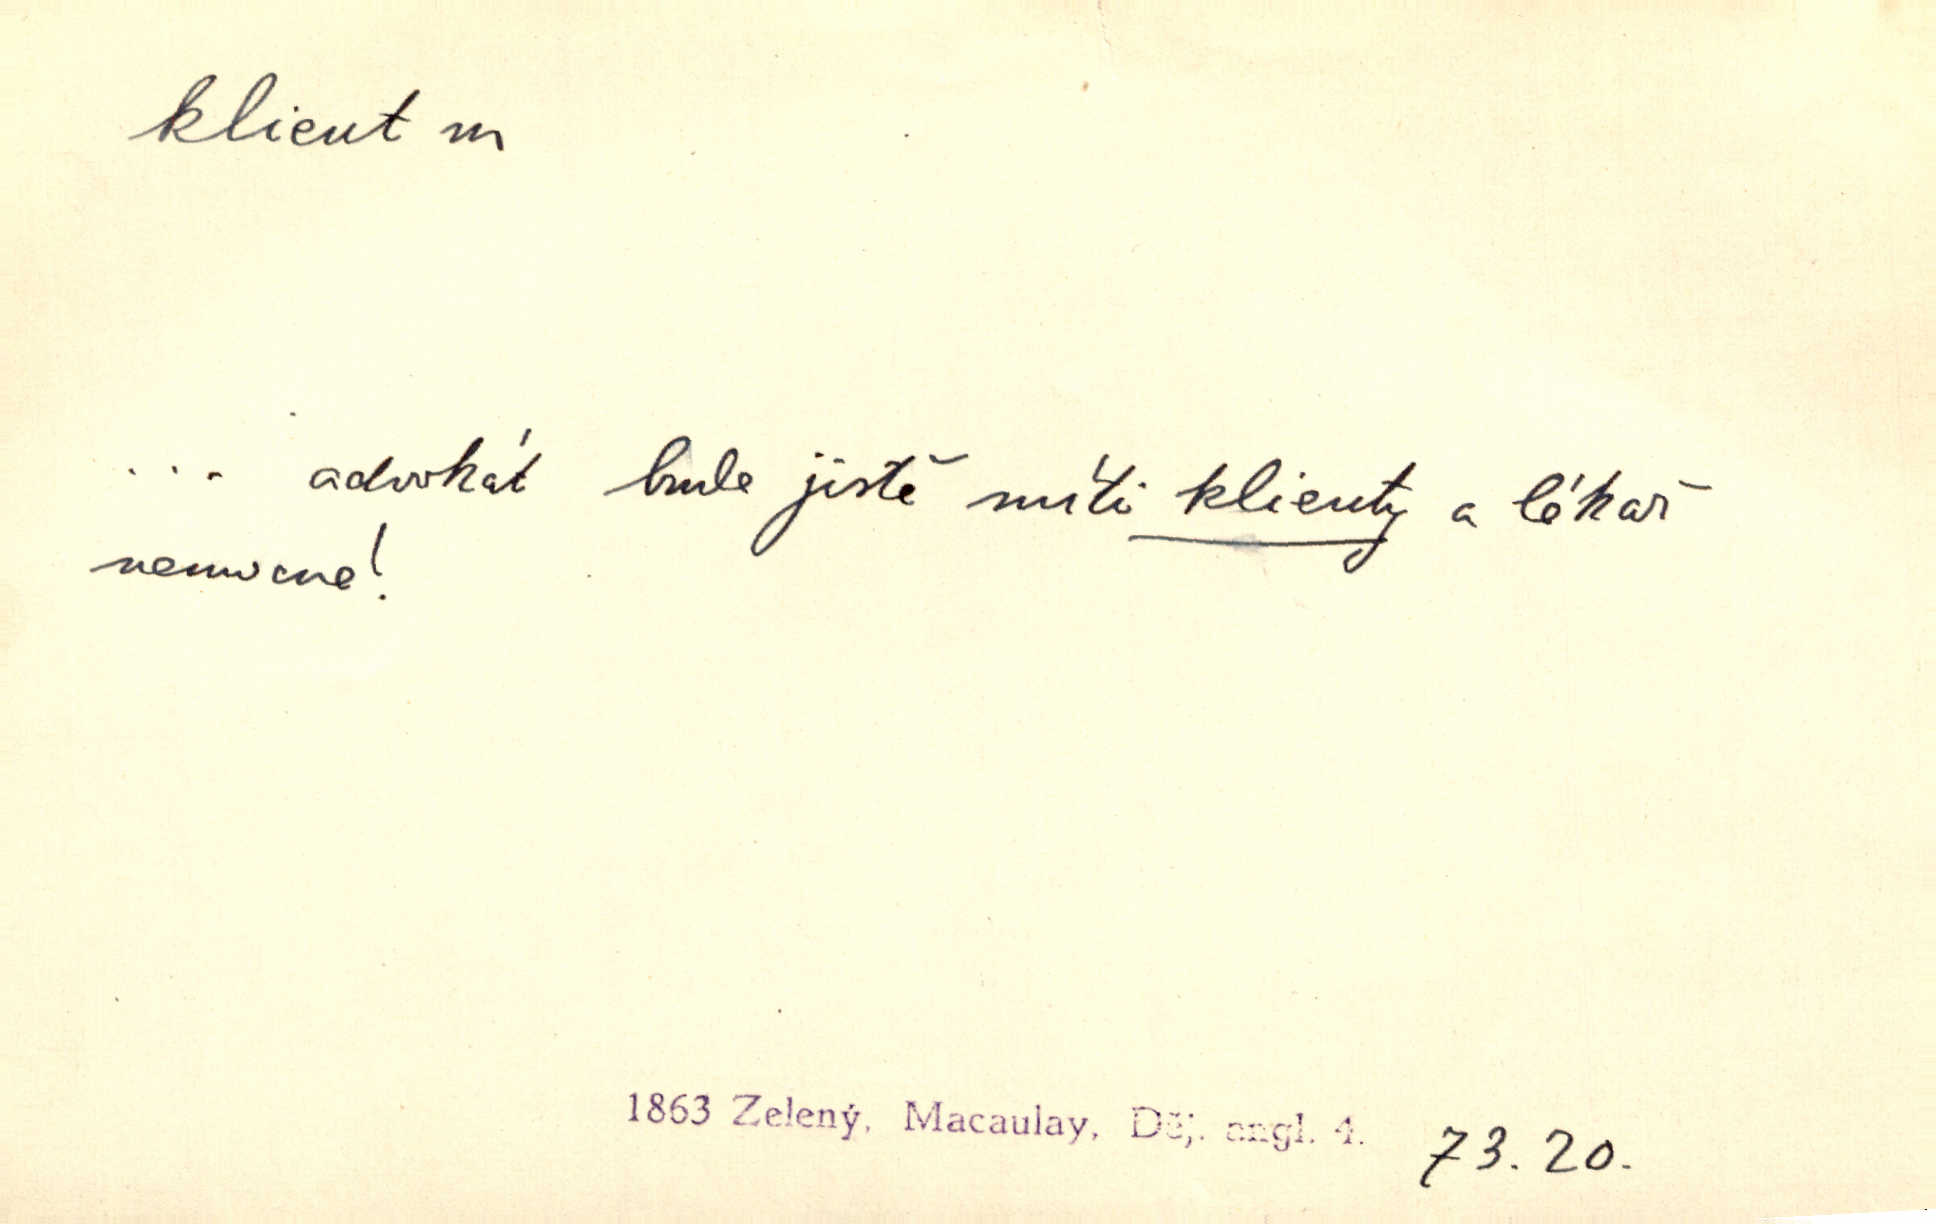 klient m
... advokát bude jistě míti klienty a lékař
nemocne!
1863 Zelený, Macaulay, Děj. angl. 4. 73.20.